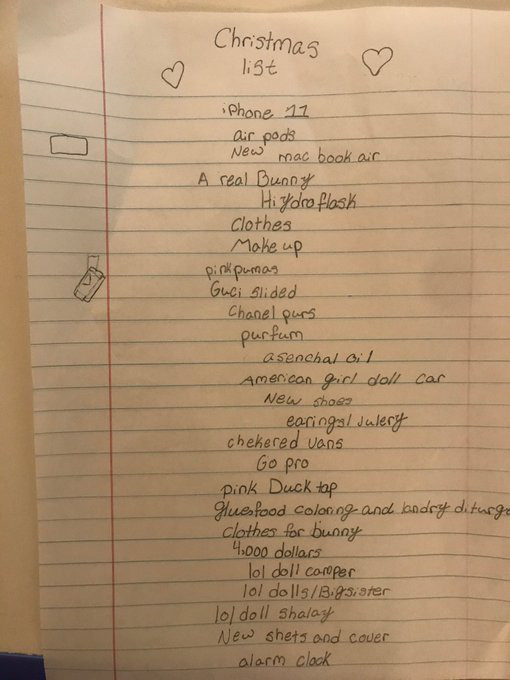 Christmas
list
iPhone 11
air pods
New mac book air
A real Bunny
Hiydroflask
clothes
Make up
pinkpumas
Guci slided
Chanel purs
purfum
asenchal oil
American girl doll car
New shoes
earings/Julery
chekered vans
Go pro
pink Duck tap
glue food coloring and landry diturge
clothes for bunny
4,000 dollars
lol doll camper
lol dolls/Bigsister
lol doll shalay
New shets and cover
alarm clock